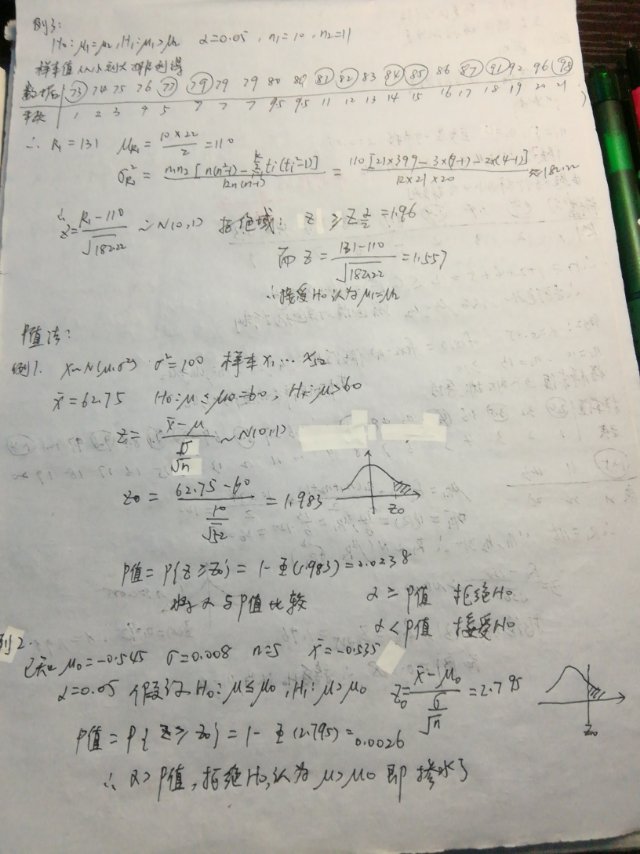 例3:
H₀: μ₁=μ₂, H₁: μ₁>μ₂ α=0.05, n₁=10, n₂=11
样本值从小到大排列得
数据 73 74 75 76 77 79 79 79 80 80 81 82 83 84 85 86 87 91 92 96 98
秩 1 2 3 4 5 7 7 7 9.5 9.5 11 12 13 14 15 16 17 18 19 20 21
∴ R₁=131 μR₁ = 10×22/2 = 110
σ²R₁ = n₁n₂[n(n²-1)-Σti(ti²-1)]/12n(n-1) = 110[21×399-3×(9-1)-2×(4-1)]/12×21×20 ≈182.22
∴ z = R₁-110/√182.22 ~N(0,1) 拒绝域: z ≥ Zα/2 = 1.96
而 z = 131-110/√182.22 = 1.557
∴接受H₀认为μ₁=μ₂
P值法:
例1. X~N(μ,σ²) σ²=100 样本x₁…x₅₂
x̄=62.75 H₀: μ≤μ₀=60, H₁: μ>60
z = x̄-μ/(σ/√n) ~N(0,1)
z₀ = 62.75-60/(10/√52) = 1.983
z₀
P值 = P{z≥z₀} = 1-Φ(1.983) = 0.0238
将α与P值比较 α≥P值 拒绝H₀
α<P值 接受H₀
例2.
已知 μ₀=-0.545 σ=0.008 n=5 x̄=-0.535
α=0.05 假设 H₀: μ≤μ₀, H₁: μ>μ₀ z₀ = x̄-μ₀/(σ/√n) = 2.795
z₀
P值 = P{z≥z₀} = 1-Φ(2.795) = 0.0026
∴ α>P值, 拒绝H₀, 认为μ>μ₀ 即掺水了